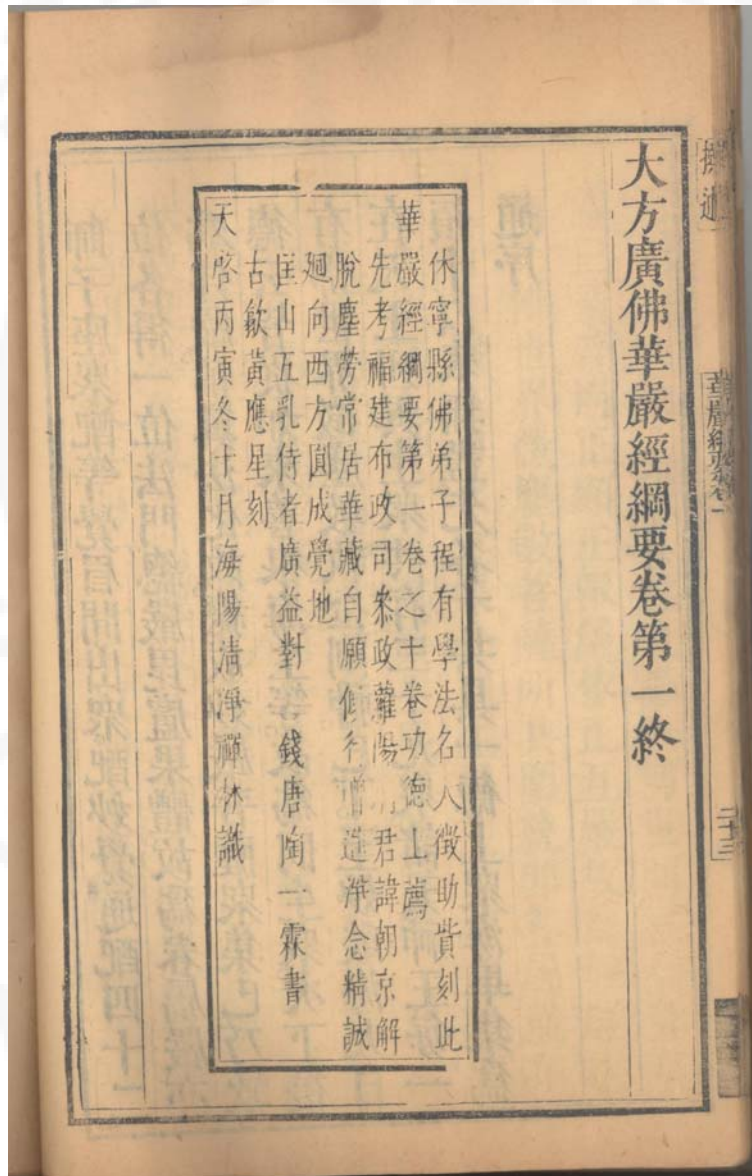 大方廣佛華嚴經綱要卷第一終
休寧縣佛弟子程有學法名大徵助貲刻此
華嚴經綱要第一卷之十卷功德上薦
先考福建布政司叅政蘿陽府君諱朝京解
脫塵勞常居華藏自願修行增進淨念精誠
廻向西方圓成覺地
匡山五乳侍者廣益對 錢唐陶一霖書
古歙黃應星刻
天啓丙寅冬十月海陽清淨禪林識
華嚴綱要卷一
二十三